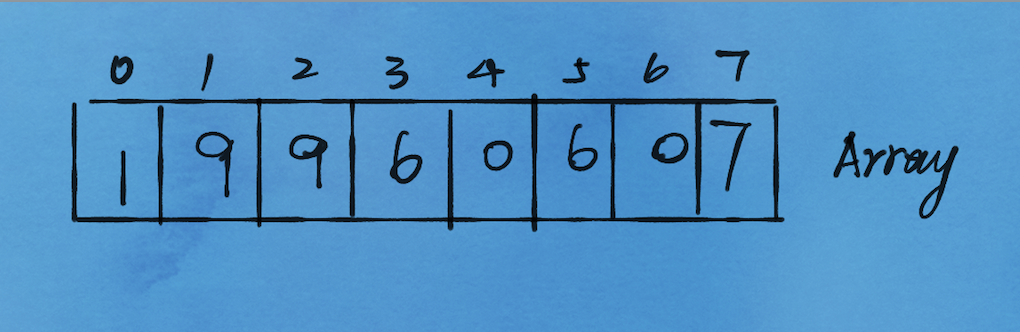 0 1 2 3 4 5 6 7
1 9 9 6 0 6 0 7 Array